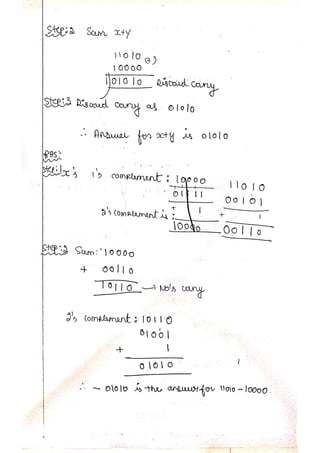 Step:2 Sum x+y
11010
10000 (+)
101010 Discard carry
Step:3 Discard carry as 01010
∴ Answer for x+y is 01010
Step:1 x's 1's complement : 10000 11010
01111 00101
+ 1 + 1
2's complement is : 10000 00110
Step:2 Sum: 10000
+ 00110
10110 → No's carry
2's complement : 10110
01001
+ 1
01010
∴ - 01010 is the answer for 11010 - 10000.